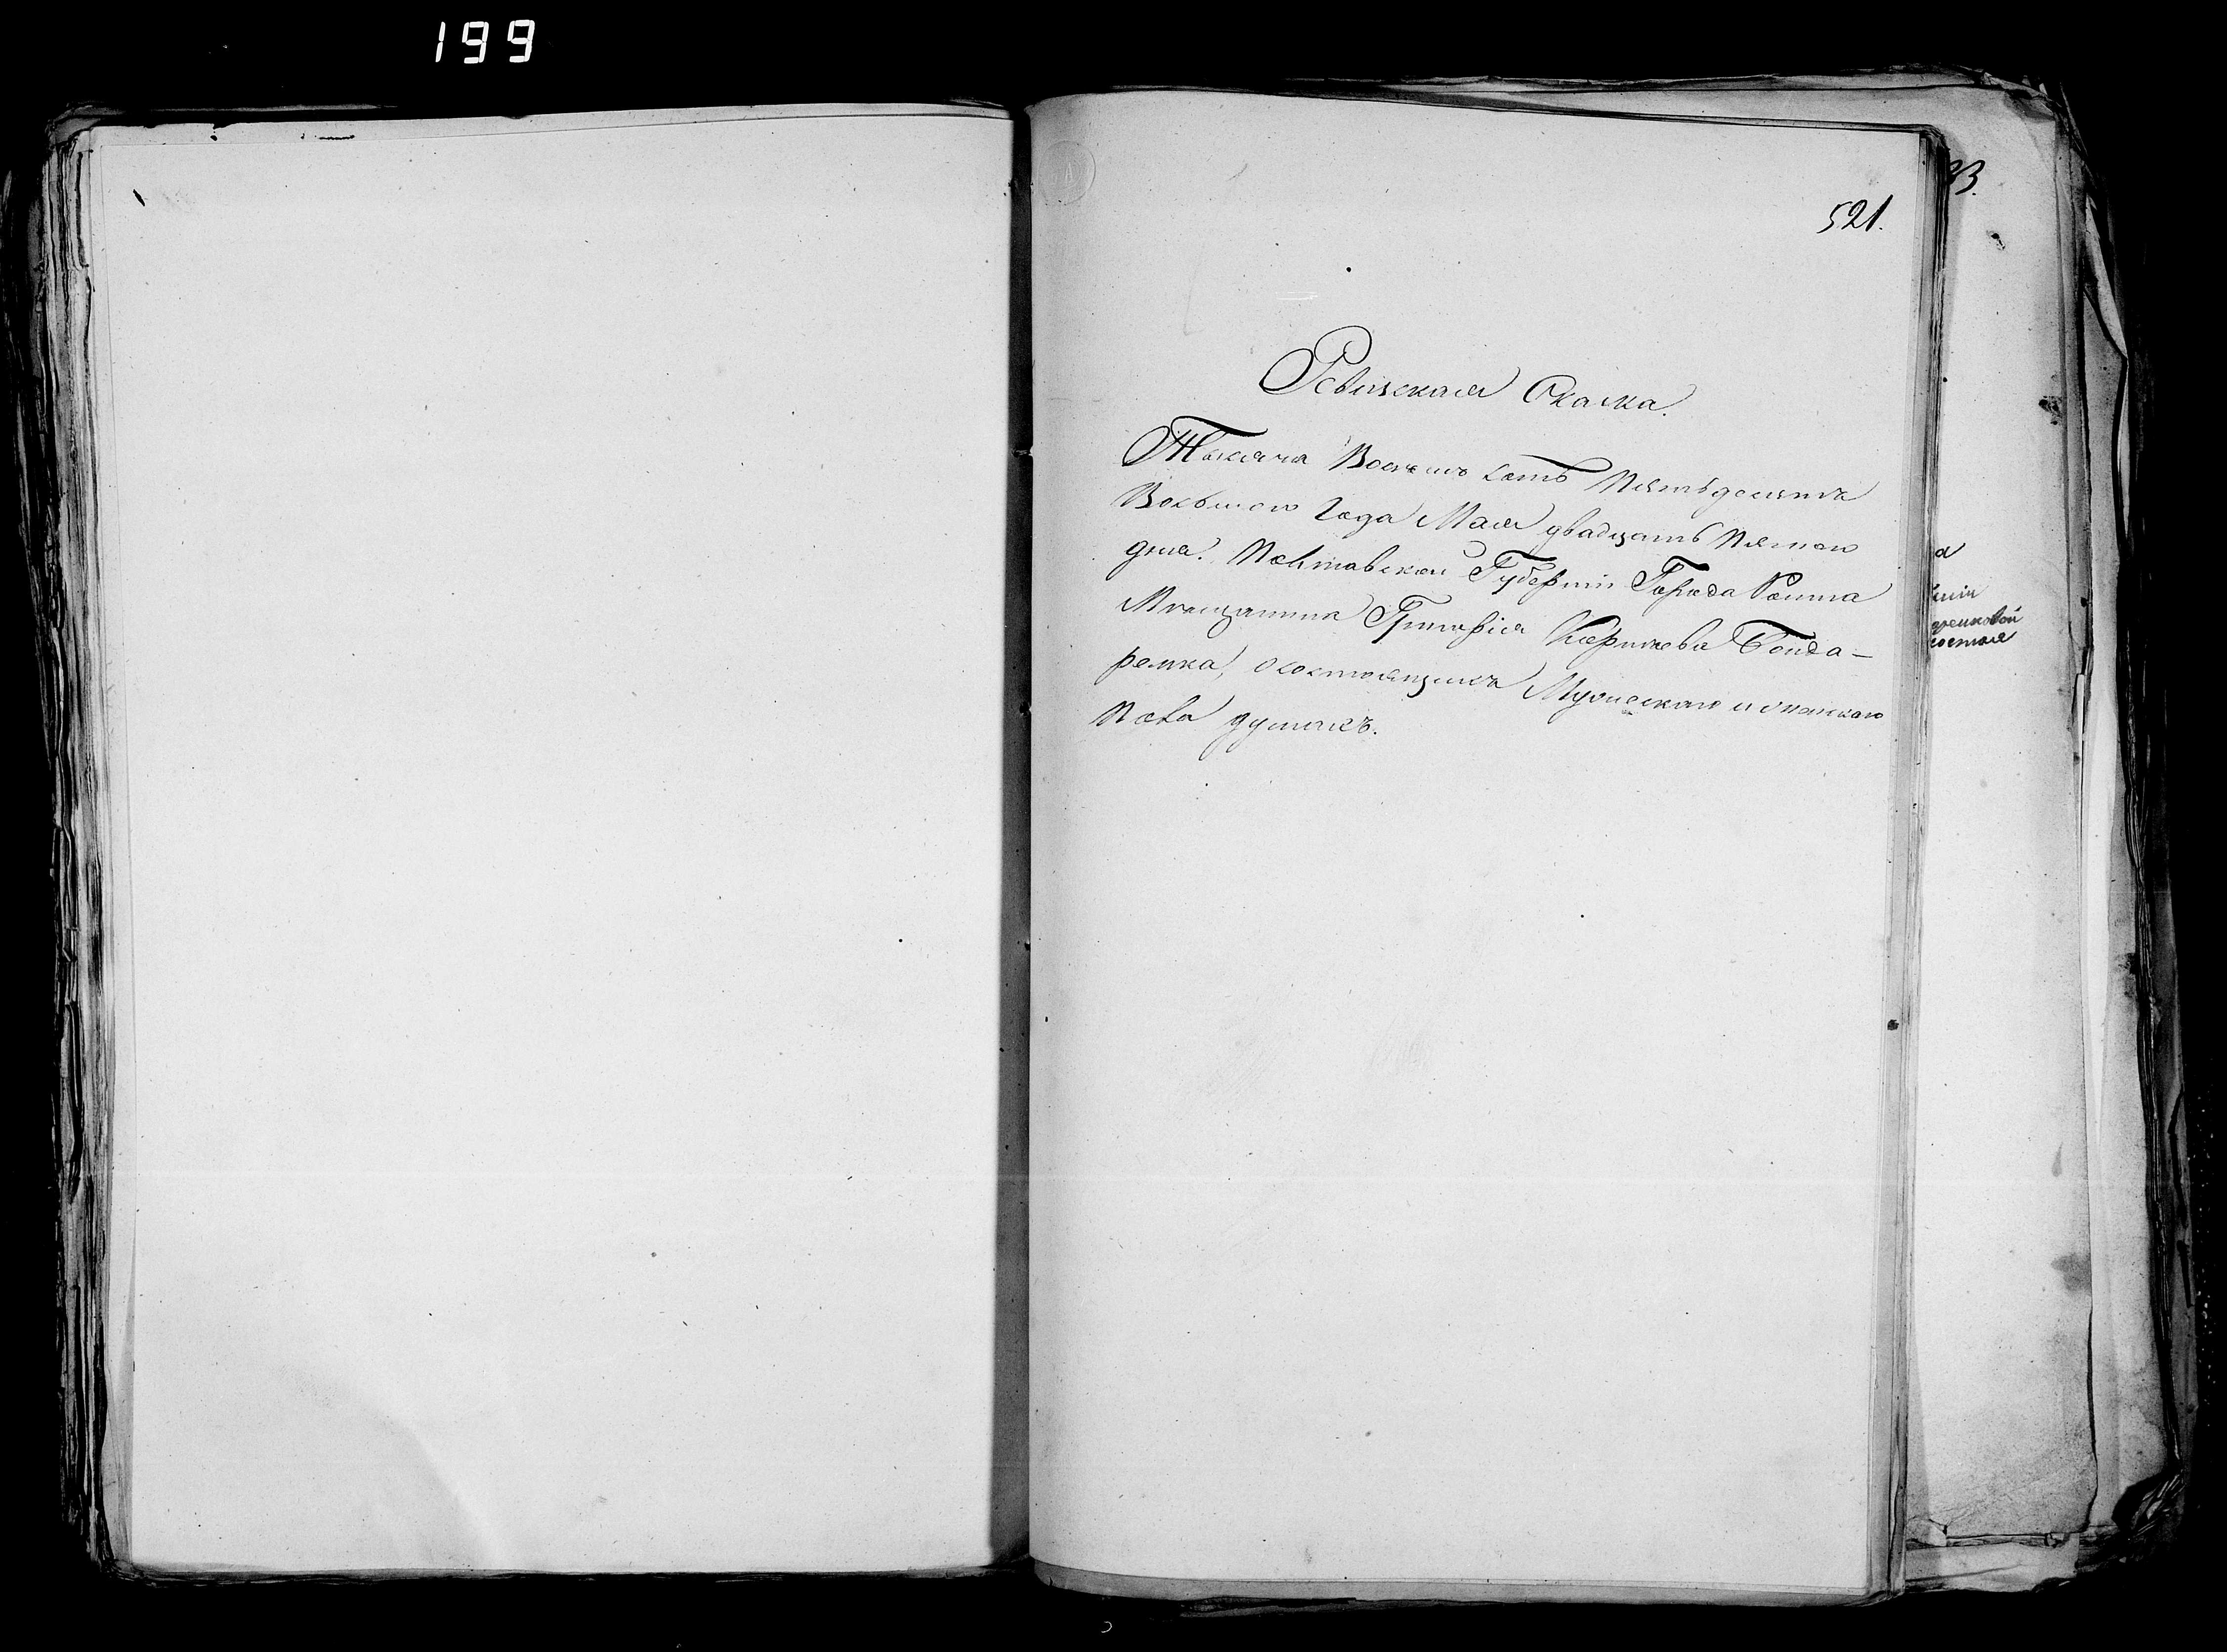 199
521.
Ревизская Сказка.
Тысяча Восемь сотъ Пятьдесятъ
Восьмого Года Мая двадцать Пятого
дня. Полтавской Губерніи Города Ромна
Мещанина Григорія Бонда-
ренка, о состоящихъ Мужескаго и женскаго
Пола душахъ.